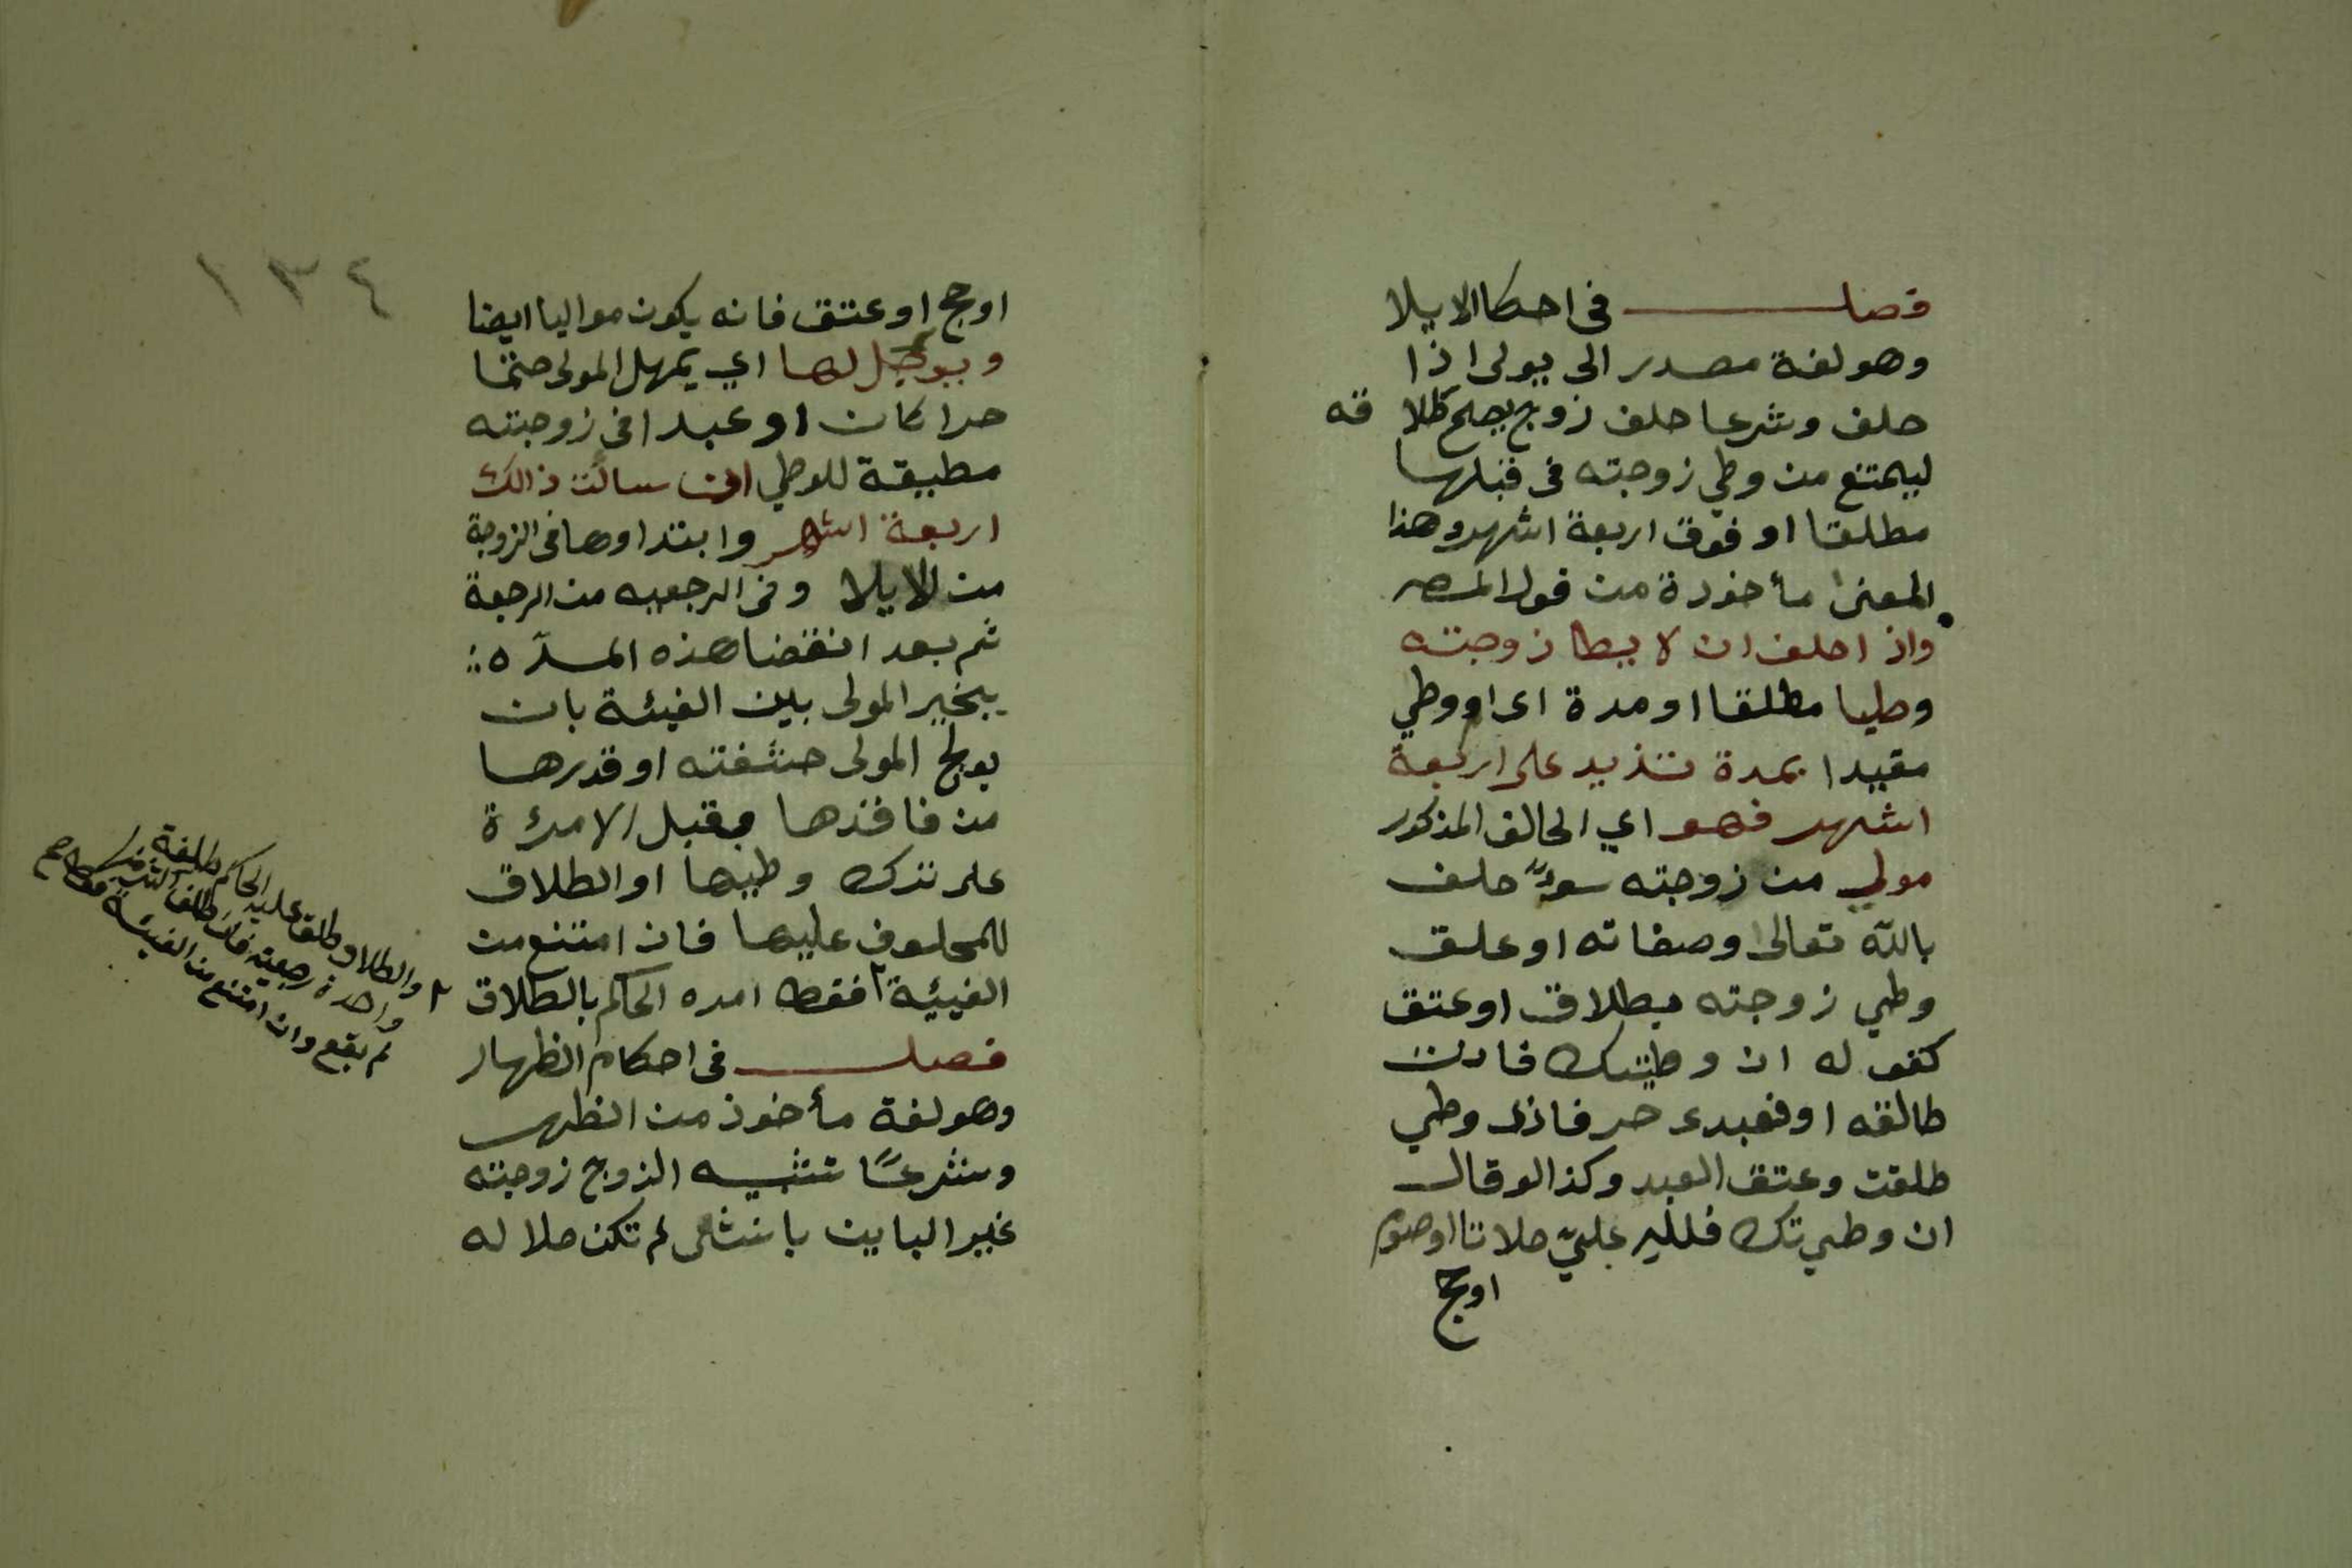 فصل في احكا الايلا
وهو لغة مصدر الى يولى اذا
حلف وشرعا حلف زوج يصح طلا قه
ليمتنع من وطي زوجته في قبلها
مطلقا او فوق اربعة اشهر وهذا
المعنى مأخودة من قول المصر
واذ احلف ان لا يطا زوجته
وطيا مطلقا او مدة اى او وطي
مقيدا بمدة تزيد على اربعة
اشهر فهو اي الحالف المذكور
مولي من زوجته سوآ حلف
بالله تعالى وصفاته او علق
وطي زوجته بطلاق او عتق
كقوله ان وطيتك فانت
طالقه او فعبدى حر فاذا وطي
طلقت وعتق العبد وكذا لو قال
ان وطيتك فلله عليّ صلاتا او صوم
اوحج
١٣٤
اوحج او عتق فانه يكون مواليا ايضا
ويوجل لها اي يمهل المولى حتما
حرا كان او عبدا في زوجته
مطيقة للوطي ان سالت ذالك
اربعة اشهر وابتداوها في الزوجة
من الايلا وفي الرجعيه من الرجعة
ثم بعد انقضا هذه المدّه
يخير المولى بين الفيئة بان
يولج المولى حشفته او قدرها
من فاقدها بقبل الامرئة
على تركه وطيها او الطلاق
للمحلوف عليها فان امتنع من
الفيئية فقط امره الحاكم بالطلاق
فصل في احكام الظهار
وهو لغة مأخوذ من الظهر
وشرعًا تشبيه الزوج زوجته
غير الباين بانثى لم تكن حلا له
والطلاق طلق عليه الحاكم طلقة
واحدة رجعية فان طلق
لم يقع وان امتنع من الفيئة فقط صح